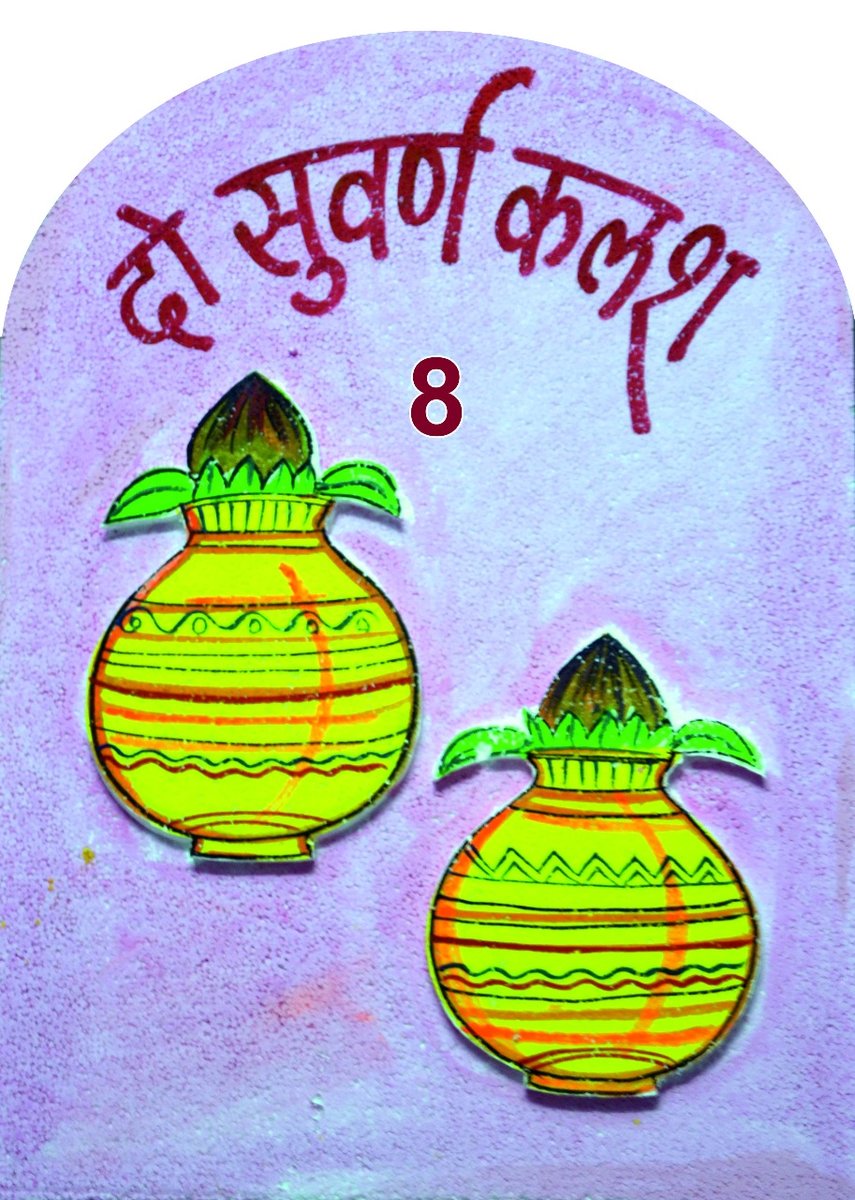 दो सुवर्ण कलश
8